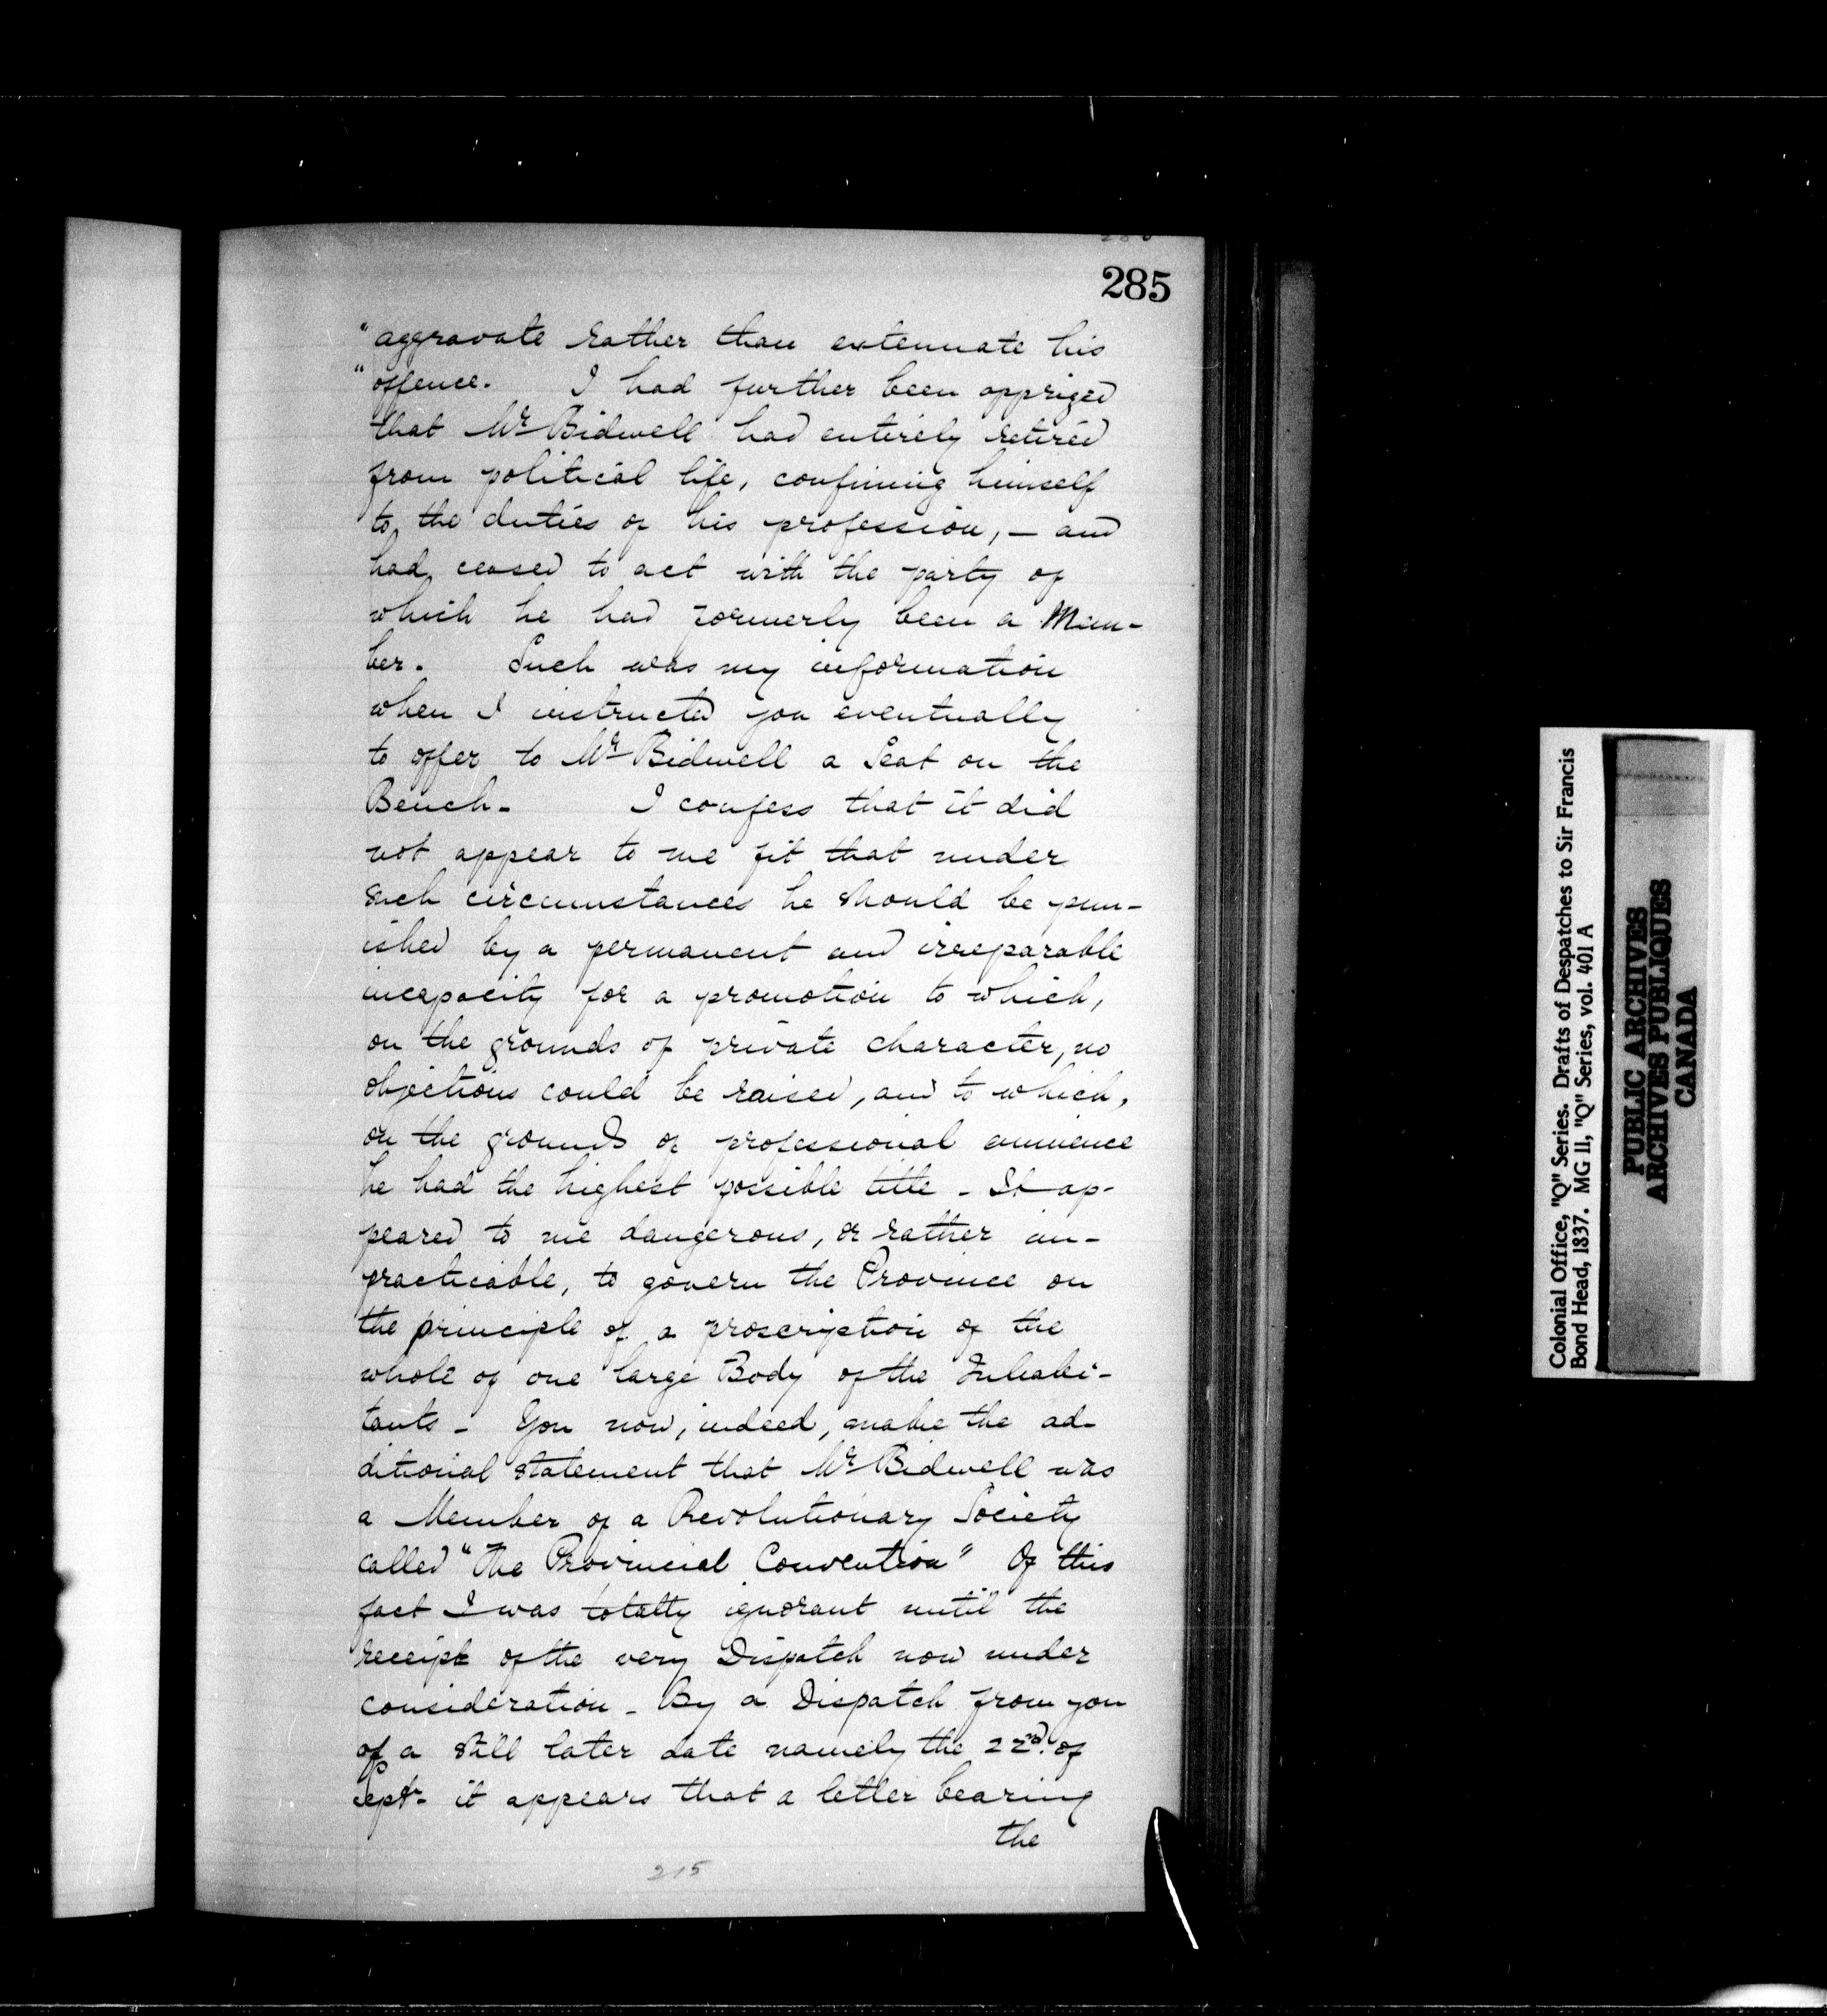 285
"aggravate rather than extenuate his
"offence. I had further been apprized
that Mr Bidwell had entirely retired
from political life, confining himself
to the duties of his profession, — and
had ceased to act with the party of
which he had formerly been a Mem-
ber. Such was my information
when I instructed you eventually
to offer to Mr Bidwell a Seat on the
Bench. I confess that it did
not appear to me fit that under
such circumstances he should be pun-
ished by a permanent and irreparable
incapacity for a promotion to which,
on the grounds of private character, no
objections could be raised, and to which,
on the grounds of professional eminence
he had the highest possible title - It ap-
peared to me dangerous, or rather im-
practicable, to govern the Province on
the principle of a proscription of the
whole of one large Body of the Inhabi-
tants - You now, indeed, make the ad-
ditional statement that Mr Bidwell was
a Member of a Revolutionary Society
called "The Provincial Convention" Of this
fact I was totally ignorant until the
receipt of the very Dispatch now under
consideration - By a Dispatch from you
of a still later date namely the 22nd. of
Septr. it appears that a letter bearing
the
215
Colonial Office, "Q" Series. Drafts of Despatches to Sir Francis
Bond Head, 1837. MG 11, "Q" Series, vol. 401 A
PUBLIC ARCHIVES
ARCHIVES PUBLIQUES
CANADA